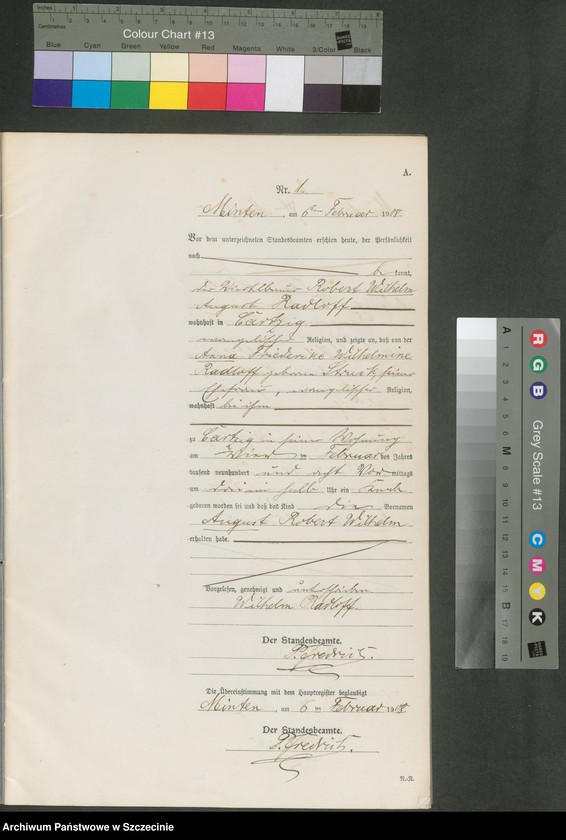 Inches
Centimetres
Colour Chart #13
Blue Cyan Green Yellow Red Magenta White 3/Color Black
A.
Nr. 1.
Minten, am 6ten Februar 1908
Vor dem unterzeichneten Standesbeamten erschien heute, der Persönlichkeit
nach
be kannt,
der Robert Wilhelm
August Radloff
wohnhaft in Cartzig
evangelischer Religion, und zeigte an, daß von der
Anna Friederike Wilhelmine
Radloff geborene Struck, seiner
Ehefrau, evangelischer Religion,
wohnhaft bei ihm
zu Cartzig in seiner Wohnung
am Februar des Jahres
tausend neunhundert und acht Vor mittags
um drei ein halb Uhr ein Knabe
geboren worden sei und daß das Kind die Vornamen
August Robert Wilhelm
erhalten habe.
Vorgelesen, genehmigt und unterschrieben
Wilhelm Radloff
Der Standesbeamte.
Die Übereinstimmung mit dem Hauptregister beglaubigt
Minten, am 6 ten Februar 1908
Der Standesbeamte.
A 1 2 3 4 5 6 M 8 9 10 11 12 13 14 15 B 17 18 19
R G B
Grey Scale #13
C M Y K
Archiwum Państwowe w Szczecinie